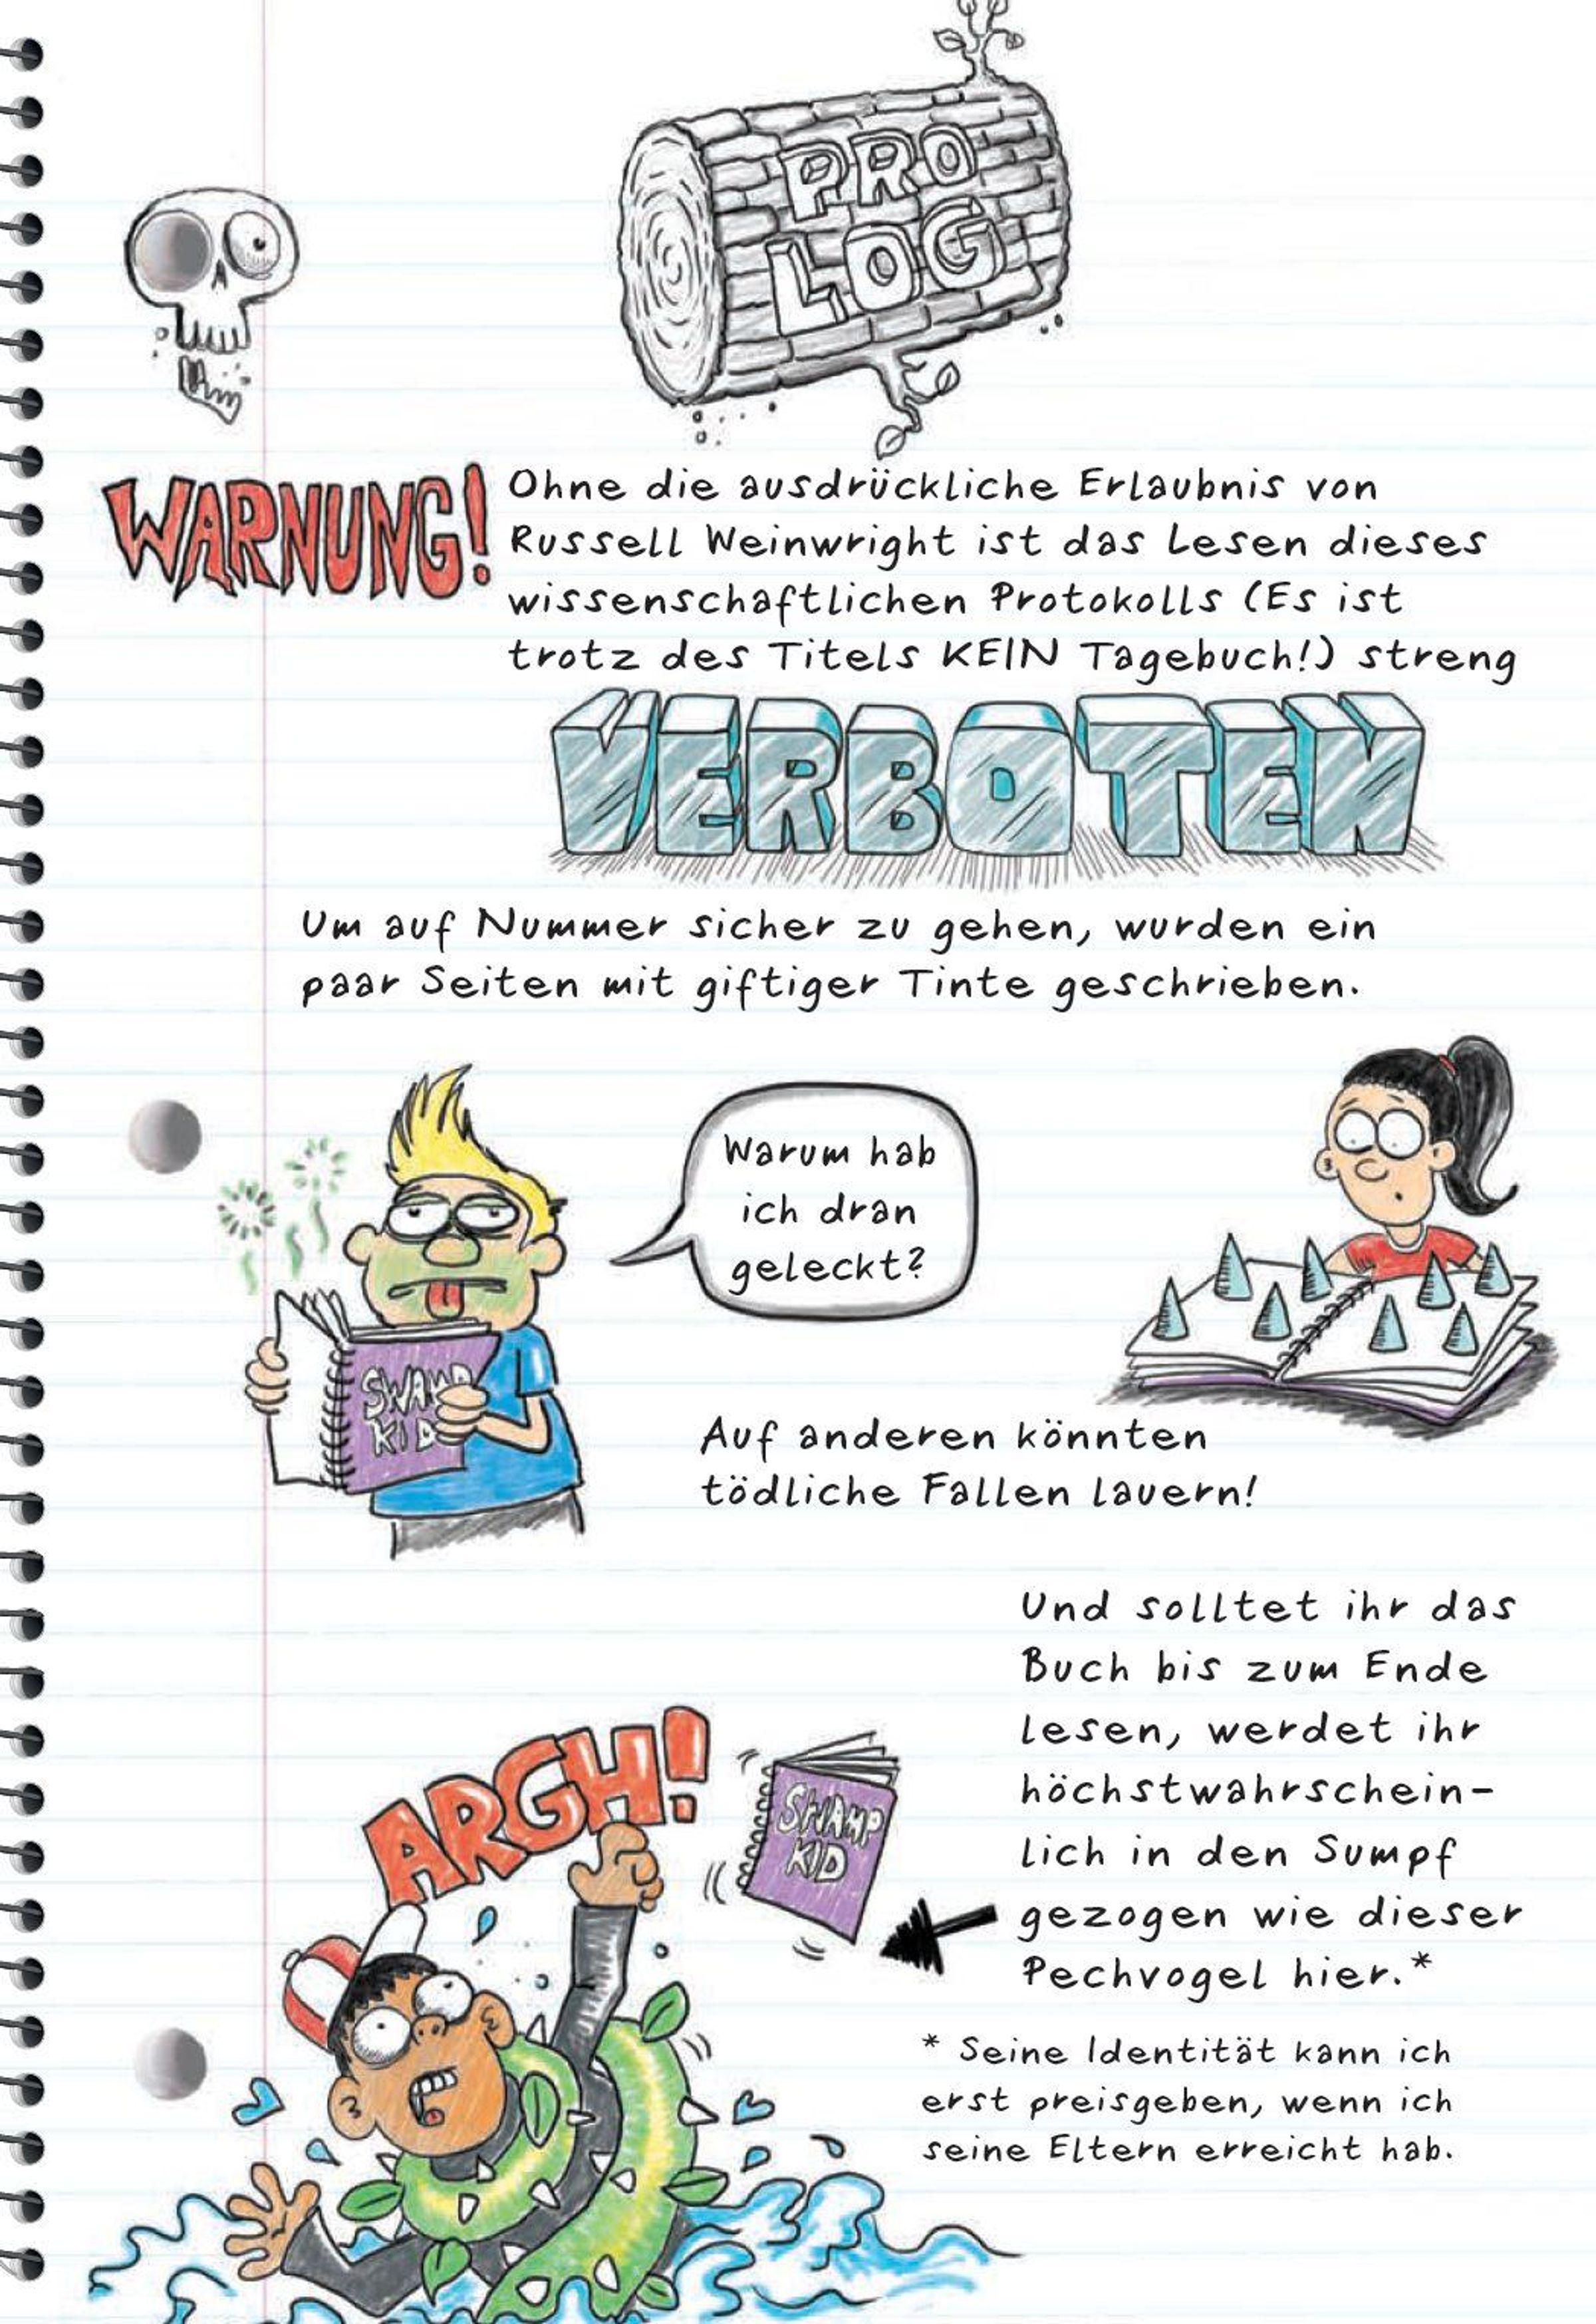 PRO
LOG
WARNUNG!
Ohne die ausdrückliche Erlaubnis von
Russell Weinwright ist das Lesen dieses
wissenschaftlichen Protokolls (Es ist
trotz des Titels KEIN Tagebuch!) streng
VERBOTEN
Um auf Nummer sicher zu gehen, wurden ein
paar Seiten mit giftiger Tinte geschrieben.
Warum hab
ich dran
geleckt?
SWAMP
KID
Auf anderen könnten
tödliche Fallen lauern!
Und solltet ihr das
Buch bis zum Ende
lesen, werdet ihr
höchstwahrschein-
lich in den Sumpf
gezogen wie dieser
Pechvogel hier.*
ARGH!
SWAMP
KID
* Seine Identität kann ich
erst preisgeben, wenn ich
seine Eltern erreicht hab.